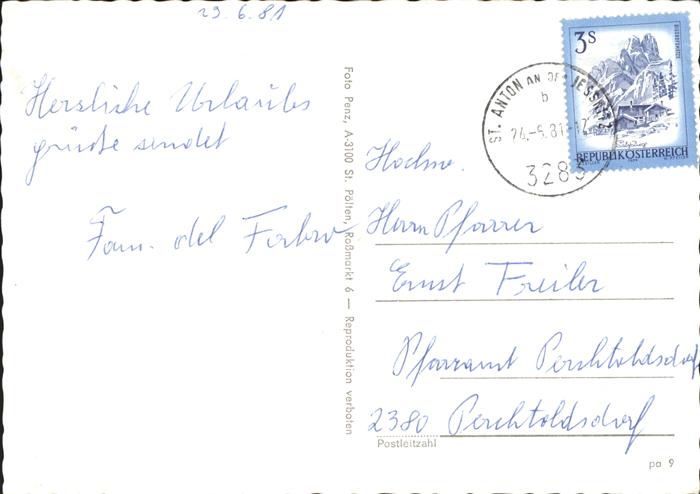 29.6.81
Herzliche Urlaubs
grüße sendet
Fam. del Fabro
Foto Penz, A-3100 St. Pölten, Roßmarkt 6 — Reproduktion verboten
3S
BISCHOFSMÜTZE
REPUBLIK ÖSTERREICH
ST. ANTON AN DER JESSNITZ
b
3283
Hochw.
Herrn Pfarrer
Ernst Freiler
Pfarramt Perchtoldsdorf
2380 Perchtoldsdorf
Postleitzahl
pa 9